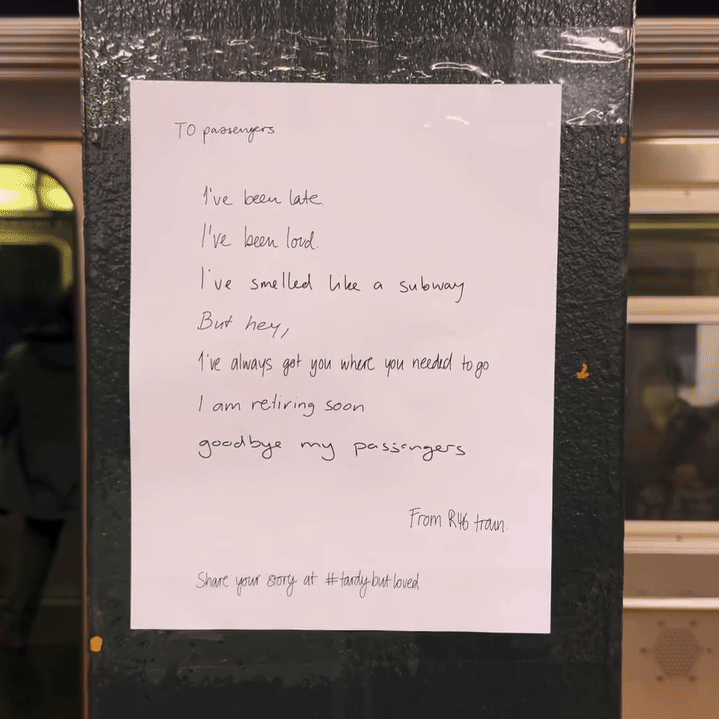 TO passengers
I've been late
I've been loud.
I've smelled like a subway
But hey,
I've always got you where you needed to go
I am retiring soon
goodbye my passengers
From R46 train.
Share your story at #tardybutloved